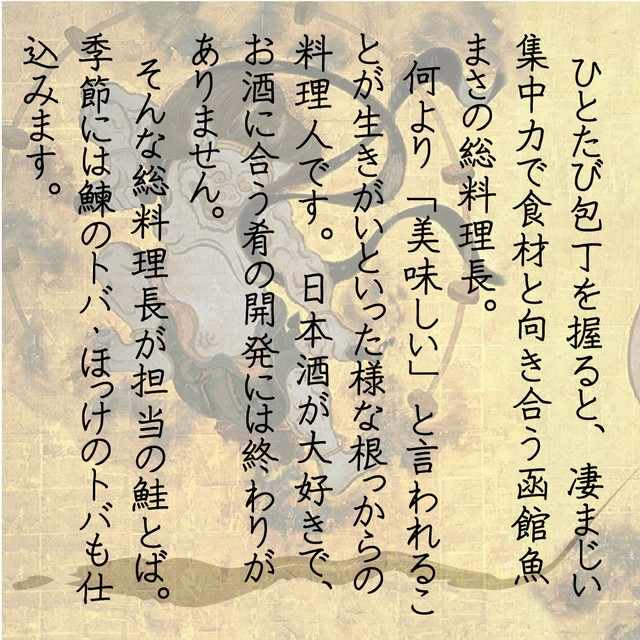 ひとたび包丁を握ると、凄まじい
集中力で食材と向き合う函館魚
まさの総料理長。
何より「美味しい」と言われるこ
とが生きがいといった様な根っからの
料理人です。日本酒が大好きで、
お酒に合う肴の開発には終わりが
ありません。
そんな総料理長が担当の鮭とば。
季節には鰊のトバ、ほっけのトバも仕
込みます。